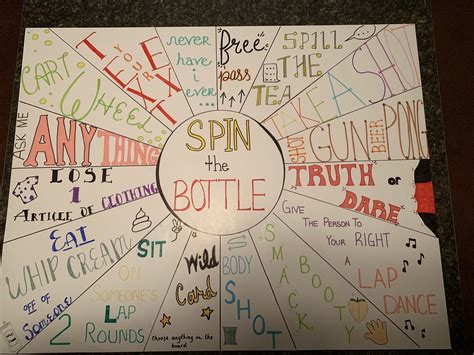 SPIN
the
BOTTLE
never
have
i
ever...
free
pass
SPILL
THE
TEA
TAKE A SHOT
SHOT
GUN
BEER
PONG
TRUTH or
DARE
GIVE
THE PERSON TO
YOUR RIGHT
A
LAP
DANCE
SMACK
A
BOOTY
BODY
SHOT
Wild
Card
choose anything on the
board
SIT
ON
SOMEONE'S
LAP
2 ROUNDS
EAT
WHIP CREAM
OFF OF
SOMEONE
LOSE
1
ARTICLE OF CLOTHING
ASK ME
ANYTHING
CART
WHEEL
TEXT
YOUR
EX